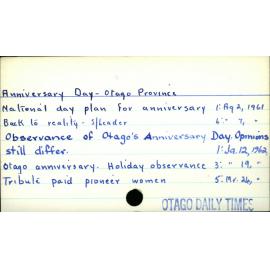 Anniversary Day - Otago Province
National day plan for anniversary 1: Ag 2, 1961
Back to reality - s/leader 4: " 7, "
Observance of Otago's Anniversary Day. Opinions
still differ. 1: Ja. 12, 1962
Otago anniversary. Holiday observance 3: " 19, "
Tribute paid pioneer women 5: Mr. 26, "
OTAGO DAILY TIMES